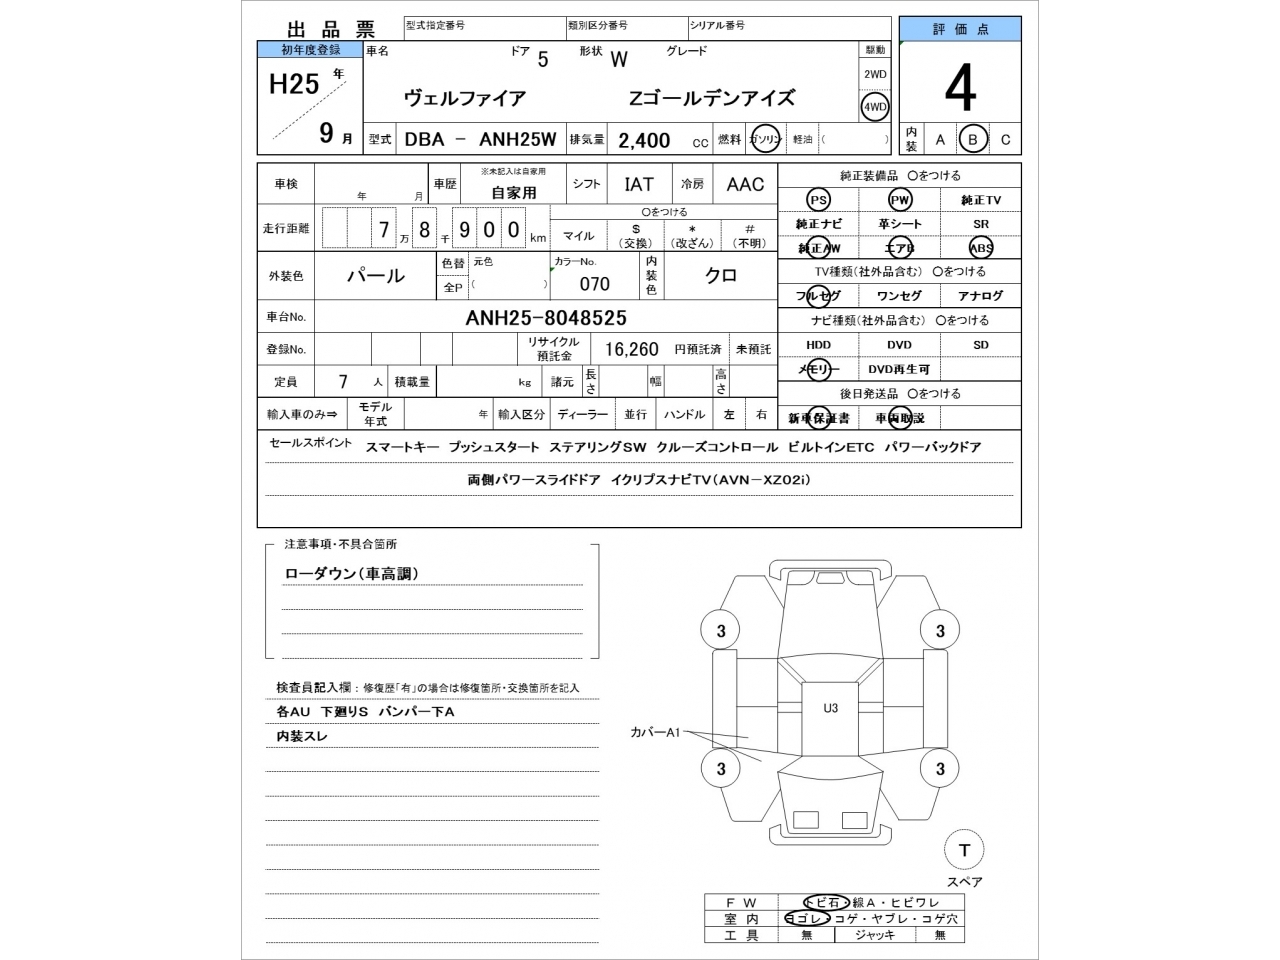 出品票
型式指定番号 類別区分番号 シリアル番号
評価点
初年度登録 車名 ドア 5 形状 W グレード 駆動
H25 年 ヴェルファイア Zゴールデンアイズ 2WD 4WD 4
9 月 型式 DBA － ANH25W 排気量 2,400 CC 燃料 ガソリン 軽油 ( ) 内装 A B C
車検 年 月 車歴 ※未記入は自家用 自家用 シフト IAT 冷房 AAC
走行距離 7 万 8 千 9 0 0 km 〇をつける マイル $ (交換) * (改ざん) # (不明)
外装色 パール 色替 元色 全P ( ) カラーNo. 070 内装色 クロ
車台No. ANH25-8048525
登録No. リサイクル預託金 16,260 円預託済 未預託
定員 7 人 積載量 kg 諸元 長さ 幅 高さ
輸入車のみ⇒ モデル年式 年 輸入区分 ディーラー 並行 ハンドル 左 右
純正装備品 〇をつける
PS PW 純正TV
純正ナビ 革シート SR
純正AW エアB ABS
TV種類(社外品含む) 〇をつける
フルセグ ワンセグ アナログ
ナビ種類(社外品含む) 〇をつける
HDD DVD SD
メモリー DVD再生可
後日発送品 〇をつける
新車保証書 車両取説
セールスポイント スマートキー プッシュスタート ステアリングSW クルーズコントロール ビルトインETC パワーバックドア
両側パワースライドドア イクリプスナビTV(AVN－XZ02i)
注意事項・不具合箇所
ローダウン(車高調)
検査員記入欄：修復歴「有」の場合は修復箇所・交換箇所を記入
各AU 下廻りS バンパー下A
内装スレ
3 3
U3
カバーA1
3 3
T
スペア
FW トビ石・線A・ヒビワレ
室内 ヨゴレ・コゲ・ヤブレ・コゲ穴
工具 無 ジャッキ 無